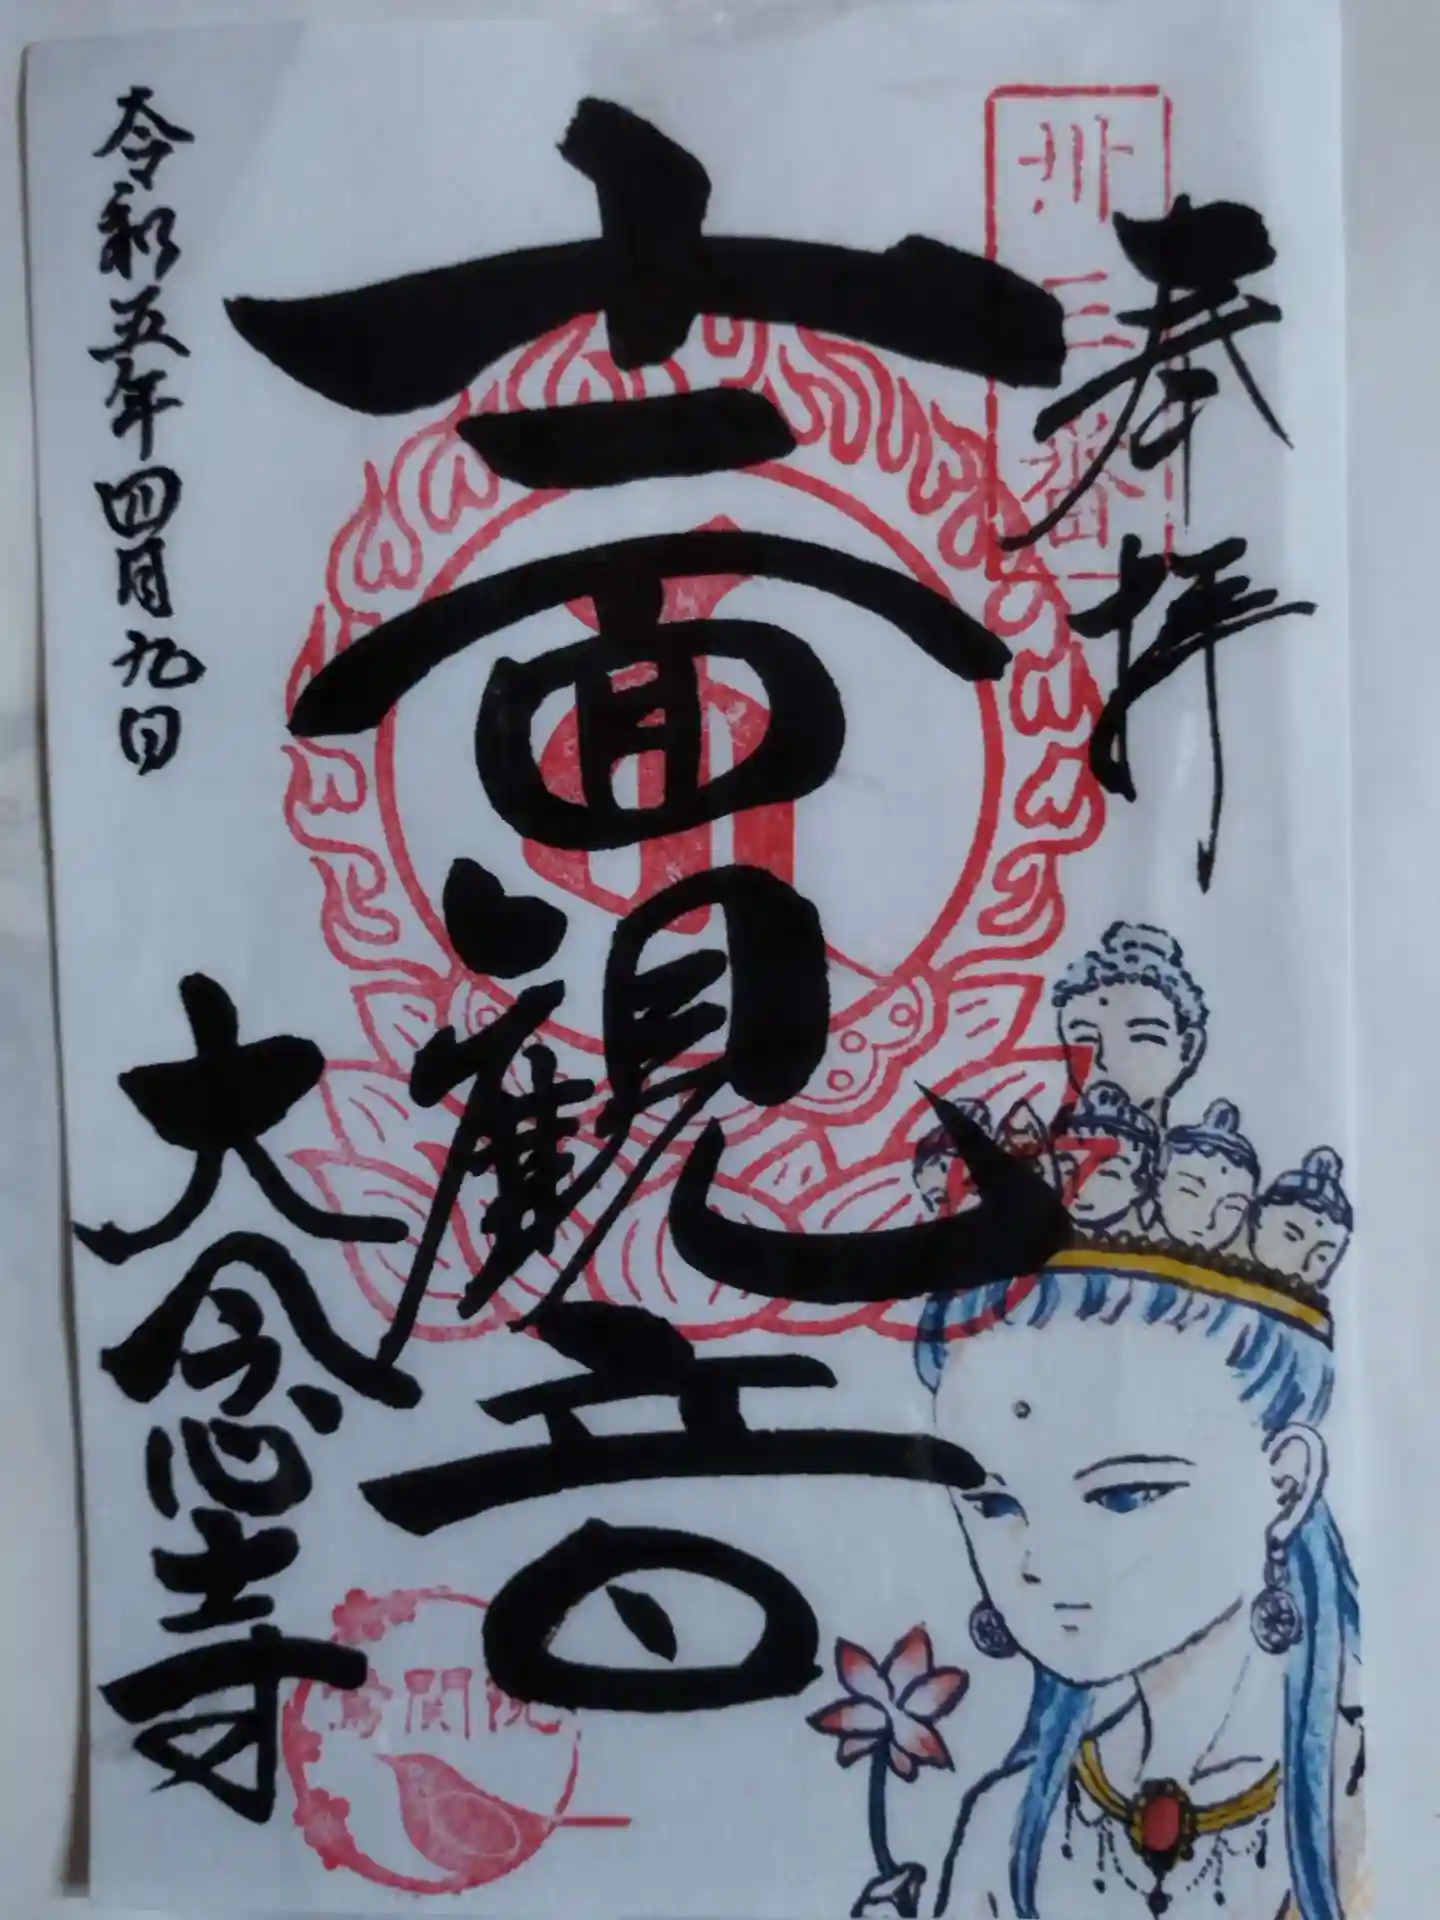 奉拝
卅三番
十一面觀音
令和五年四月九日
大念寺